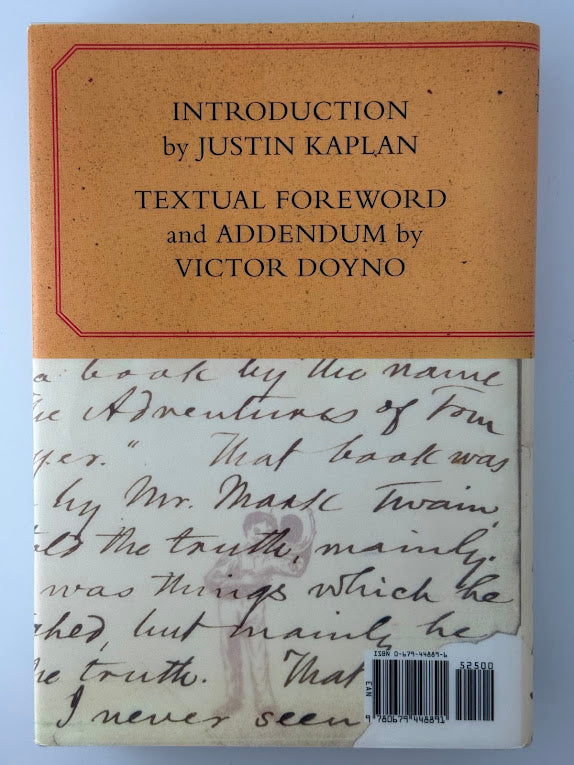 INTRODUCTION
by JUSTIN KAPLAN
TEXTUAL FOREWORD
and ADDENDUM by
VICTOR DOYNO
a book by the name
he Adventures of Tom
yer." That book was
by Mr. Mark Twain,
old the truth, mainly.
was things which he
ched, but mainly he
he truth. That
I never seen
ISBN 0-679-44889-6
52500
EAN
9 780679 448891